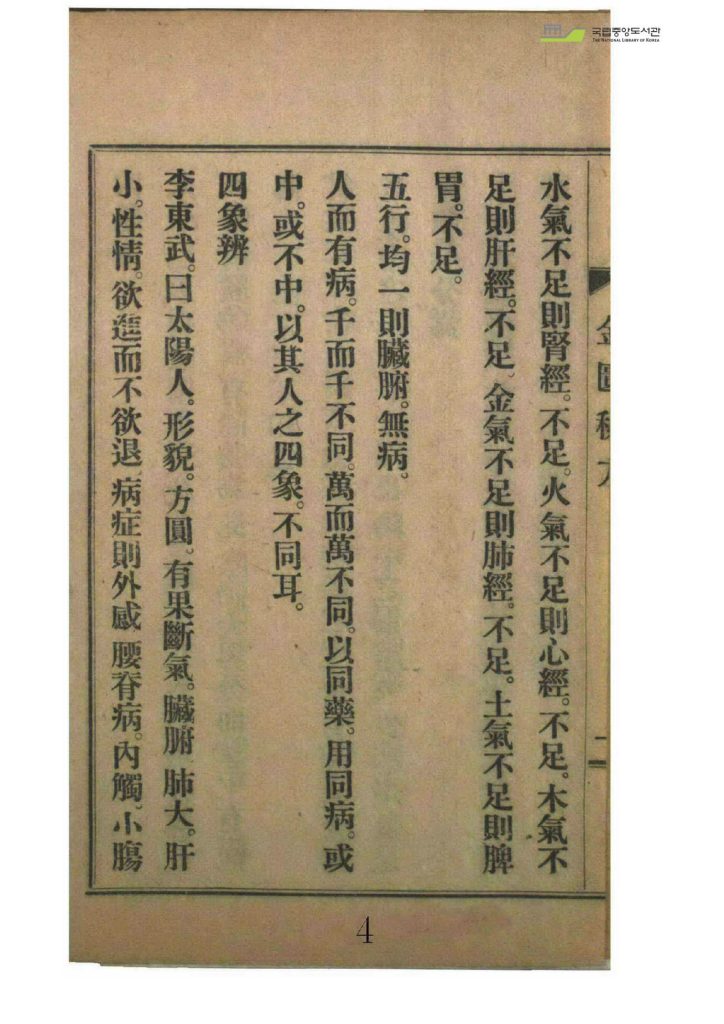 국립중앙도서관
THE NATIONAL LIBRARY OF KOREA
水氣不足則腎經。不足。火氣不足則心經。不足。木氣不
足則肝經。不足。金氣不足則肺經。不足。土氣不足則脾
胃。不足。
五行。均一則臟腑。無病。
人而有病。千而千不同。萬而萬不同。以同藥。用同病。或
中。或不中。以其人之四象。不同耳。
四象辨
李東武。曰太陽人。形貌。方圓。有果斷氣。臟腑 肺大。肝
小。性情。欲進而不欲退 病症則外感 腰脊病。內觸。小腸
二
4